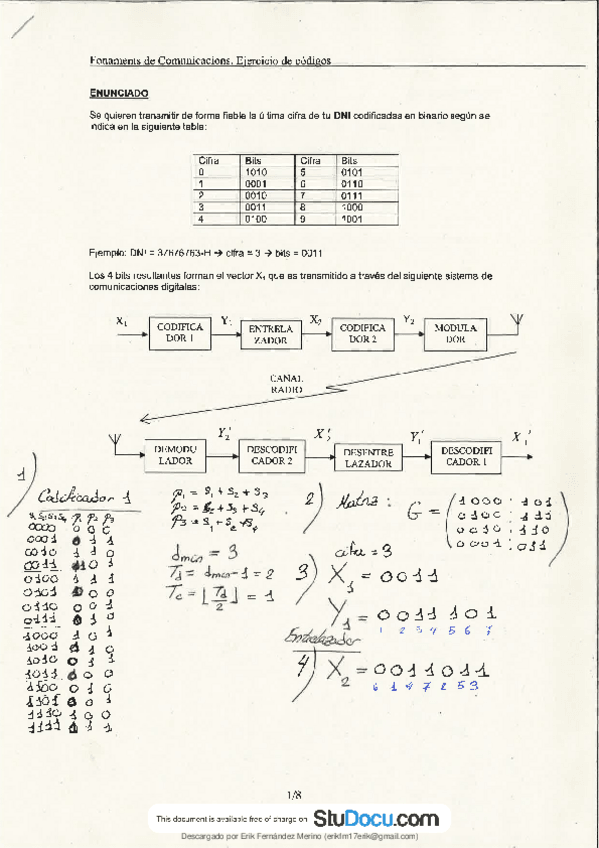 Fonaments de Comunicacions. Ejercicio de códigos
ENUNCIADO
Se quieren transmitir de forma fiable la ú tima cifra de tu DNI codificadas en binario según se
indica en la siguiente tabla:
Cifra Bits Cifra Bits
0 1010 5 0101
1 0001 6 0110
2 0010 7 0111
3 0011 8 1000
4 0100 9 1001
Ejemplo: DNI = 37676763-H → cifra = 3 → bits = 0011
Los 4 bits resultantes forman el vector X₁ que es transmitido a través del siguiente sistema de
comunicaciones digitales:
X₁ CODIFICA DOR 1 Y₁ ENTRELA ZADOR X₂ CODIFICA DOR 2 Y₂ MODULA DOR
CANAL
RADIO
DEMODU LADOR Y₂' DESCODIFI CADOR 2 X₂' DESENTRE LAZADOR Y₁' DESCODIFI CADOR 1 X₁'
1)
Codificador 1
S₁ S₂ S₃ S₄ P₁ P₂ P₃
0000 0 0 0
0001 0 1 1
0010 1 1 0
0011 1 0 1
0100 1 1 1
0101 1 0 0
0110 0 0 1
0111 0 1 0
1000 1 0 1
1001 1 1 0
1010 0 1 1
1011 0 0 0
1100 0 1 0
1101 0 0 1
1110 1 0 0
1111 1 1 1
P₁ = S₁ + S₂ + S₃
P₂ = S₂ + S₃ + S₄
P₃ = S₁ + S₂ + S₄
dmin = 3
Td = dmin - 1 = 2
Tc = ⌊Td/2⌋ = 1
2) Matriz: G = (1000 : 101
0100 : 111
0010 : 110
0001 : 011)
cifra = 3
3) X₁ = 0011
Y₁ = 0011101
1 2 3 4 5 6 7
Entrelazador
4) X₂ = 0011011
6 1 4 7 2 5 3
1/8
This document is available free of charge on StuDocu.com
Descargado por Erik Fernández Merino (erikfm17erik@gmail.com)